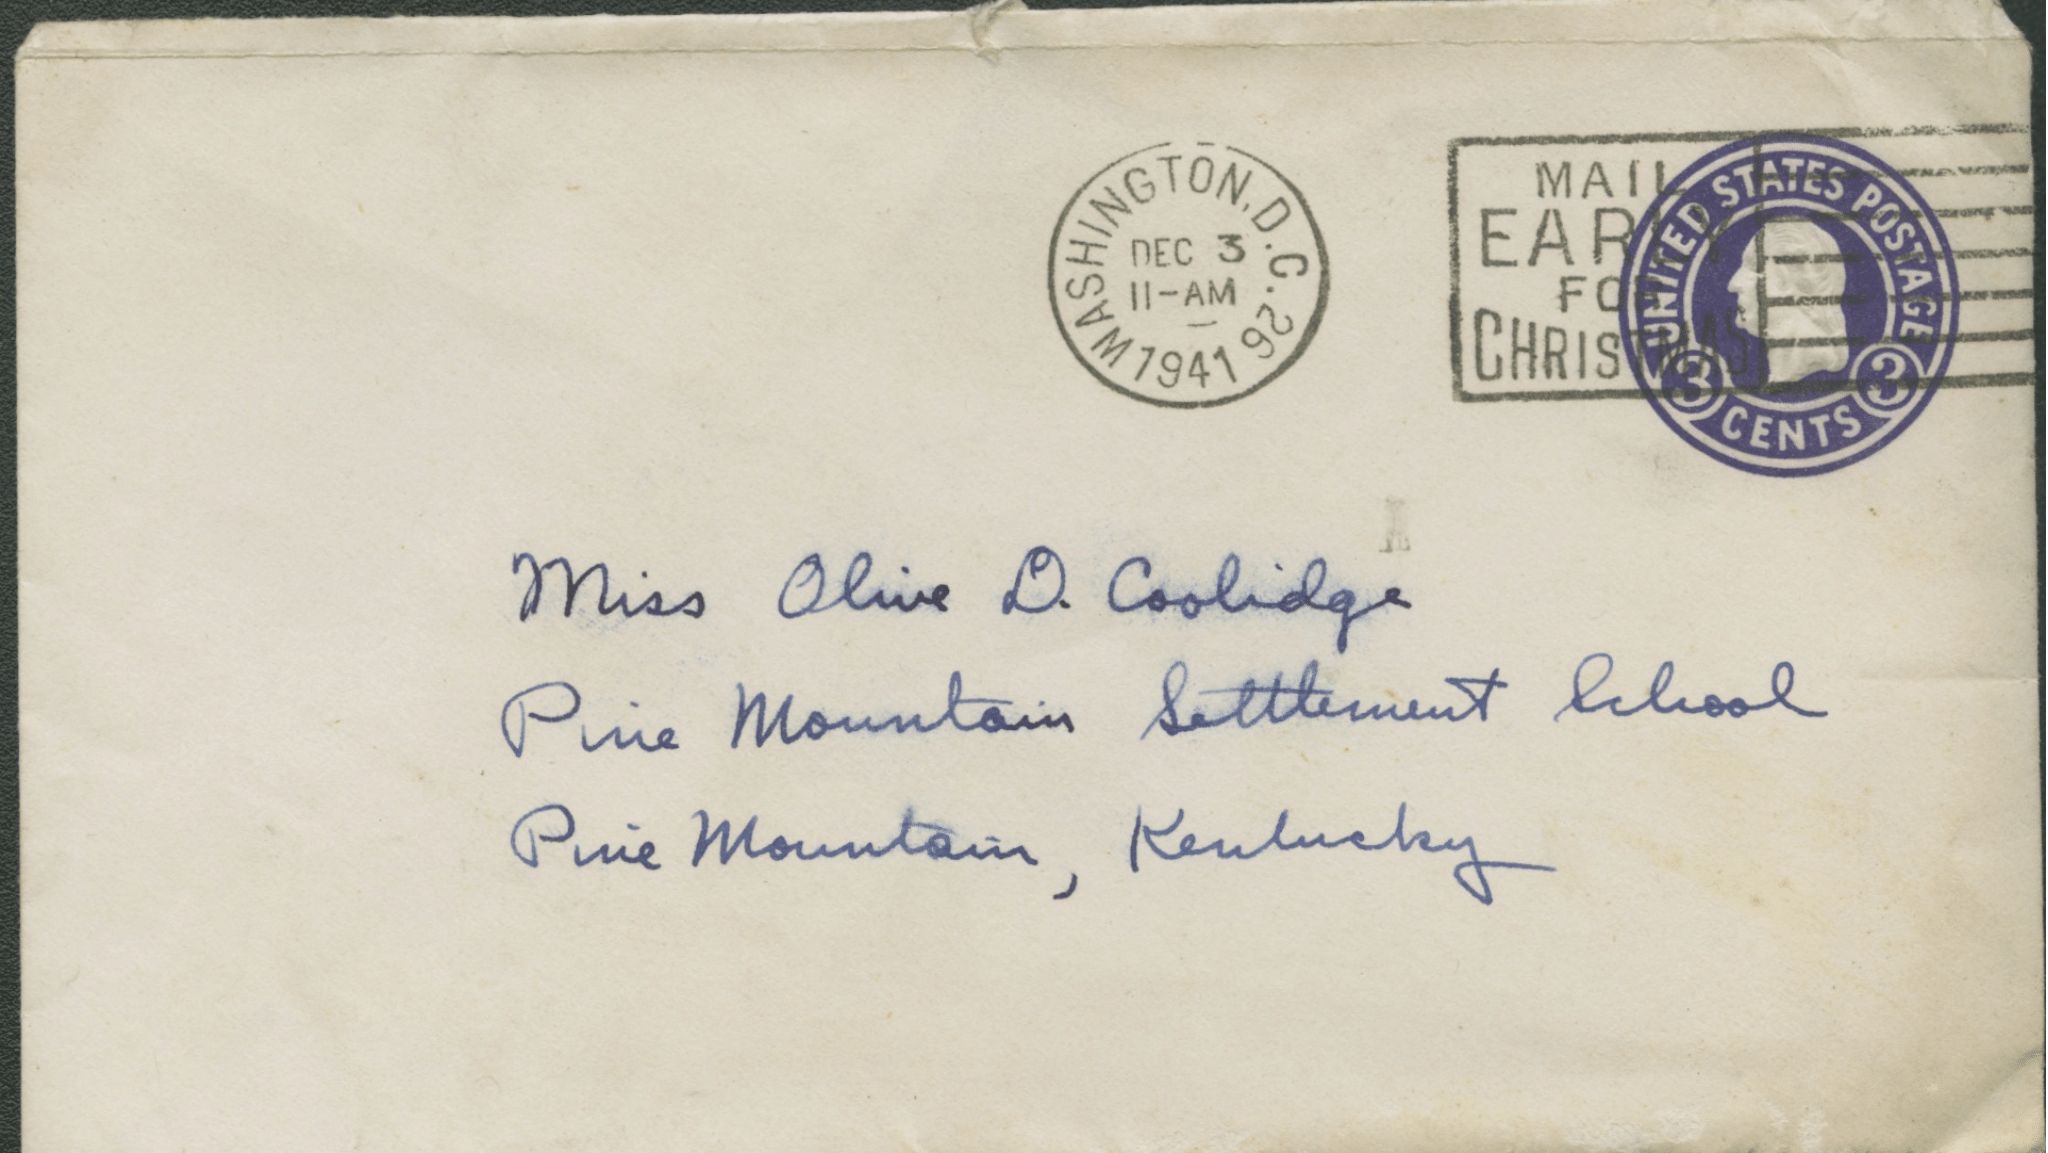 WASHINGTON, D.C. 26
DEC 3
11-AM
1941
MAIL
EARLY
FOR
CHRISTMAS
UNITED STATES POSTAGE
3 CENTS 3
Miss Olive D. Coolidge
Pine Mountain Settlement School
Pine Mountain, Kentucky